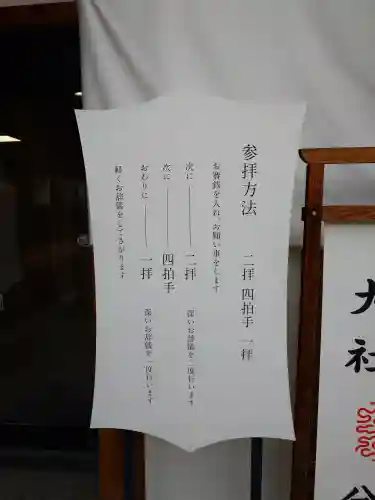 参拝方法　二拝 四拍手 一拝
お賽銭を入れ、お願い事をします
次に――二拝　深いお辞儀を二度行います
次に――四拍手
おわりに――一拝　深いお辞儀を一度行います
軽くお辞儀をしてさがります
社